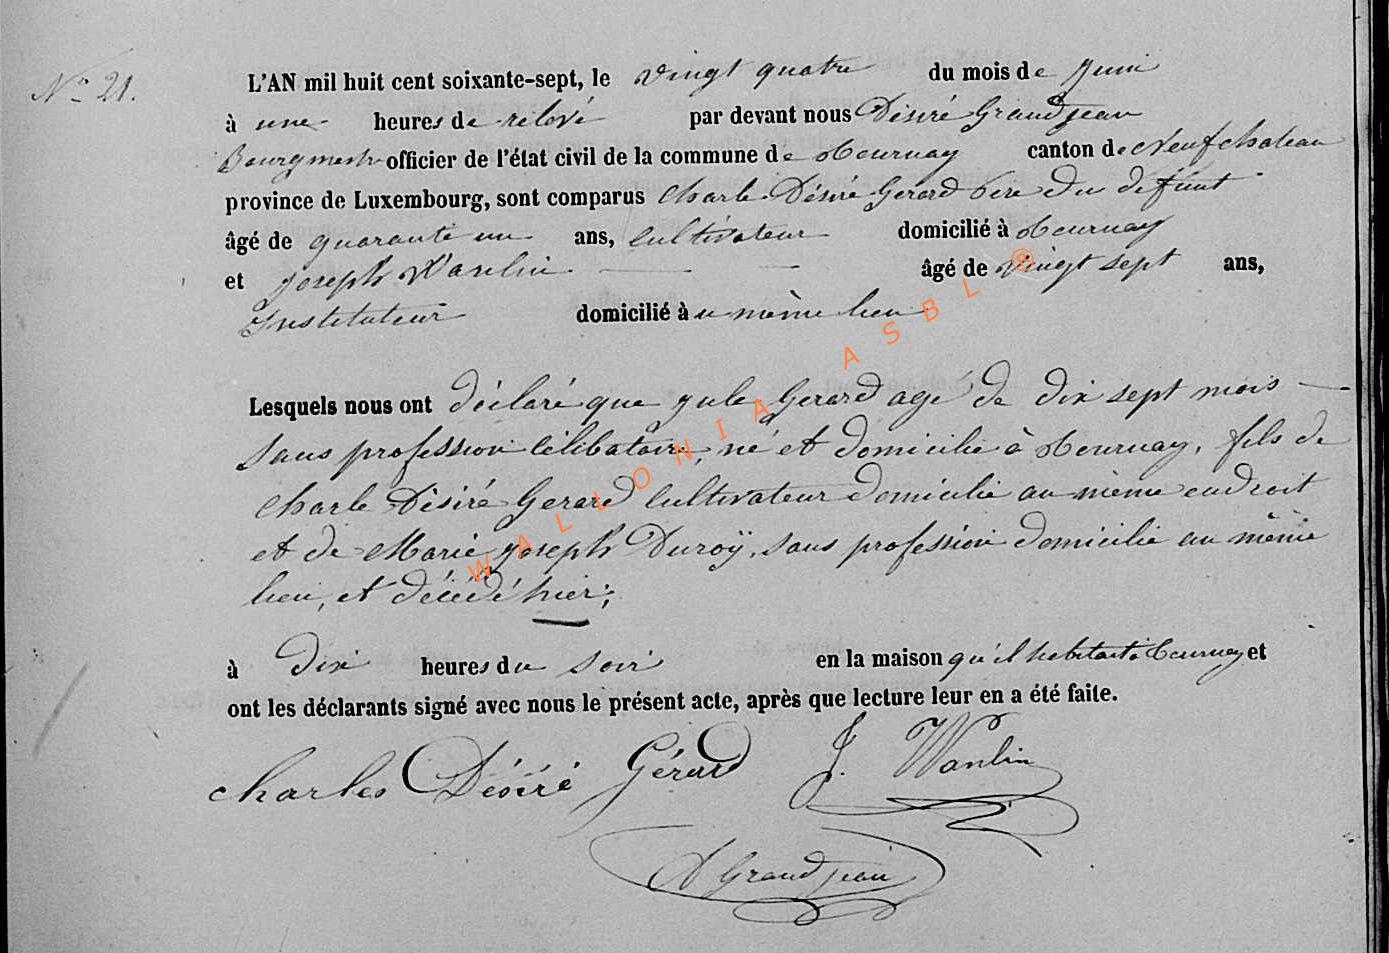 Nº 21.
L'AN mil huit cent soixante-sept, le vingt quatre du mois de Juin
à une heures de relevé par devant nous Désiré Grandjean
Bourgmestre officier de l'état civil de la commune de Tournay canton de Neufchateau
province de Luxembourg, sont comparus Charle Désiré Gerard Père du défunt
âgé de quarante un ans, cultivateur domicilié à Tournay
et Joseph Wanlin âgé de vingt sept ans,
Instituteur domicilié à u même lieu
Lesquels nous ont déclaré que Jule Gerard agé de dix sept mois
Sans profession célibataire, né et domicilié à Tournay, fils de
Charle Désiré Gerard cultivateur domicilié au même endroit
et de Marie Joseph Duroÿ, sans profession domicilié au même
lieu, et décédé hier;
à Dix heures du soir en la maison qu'il habitait à Tournay et
ont les déclarants signé avec nous le présent acte, après que lecture leur en a été faite.
Charles Désiré Gérard J. Wanlin
D Grandjean
WALLONIA ASBL ®